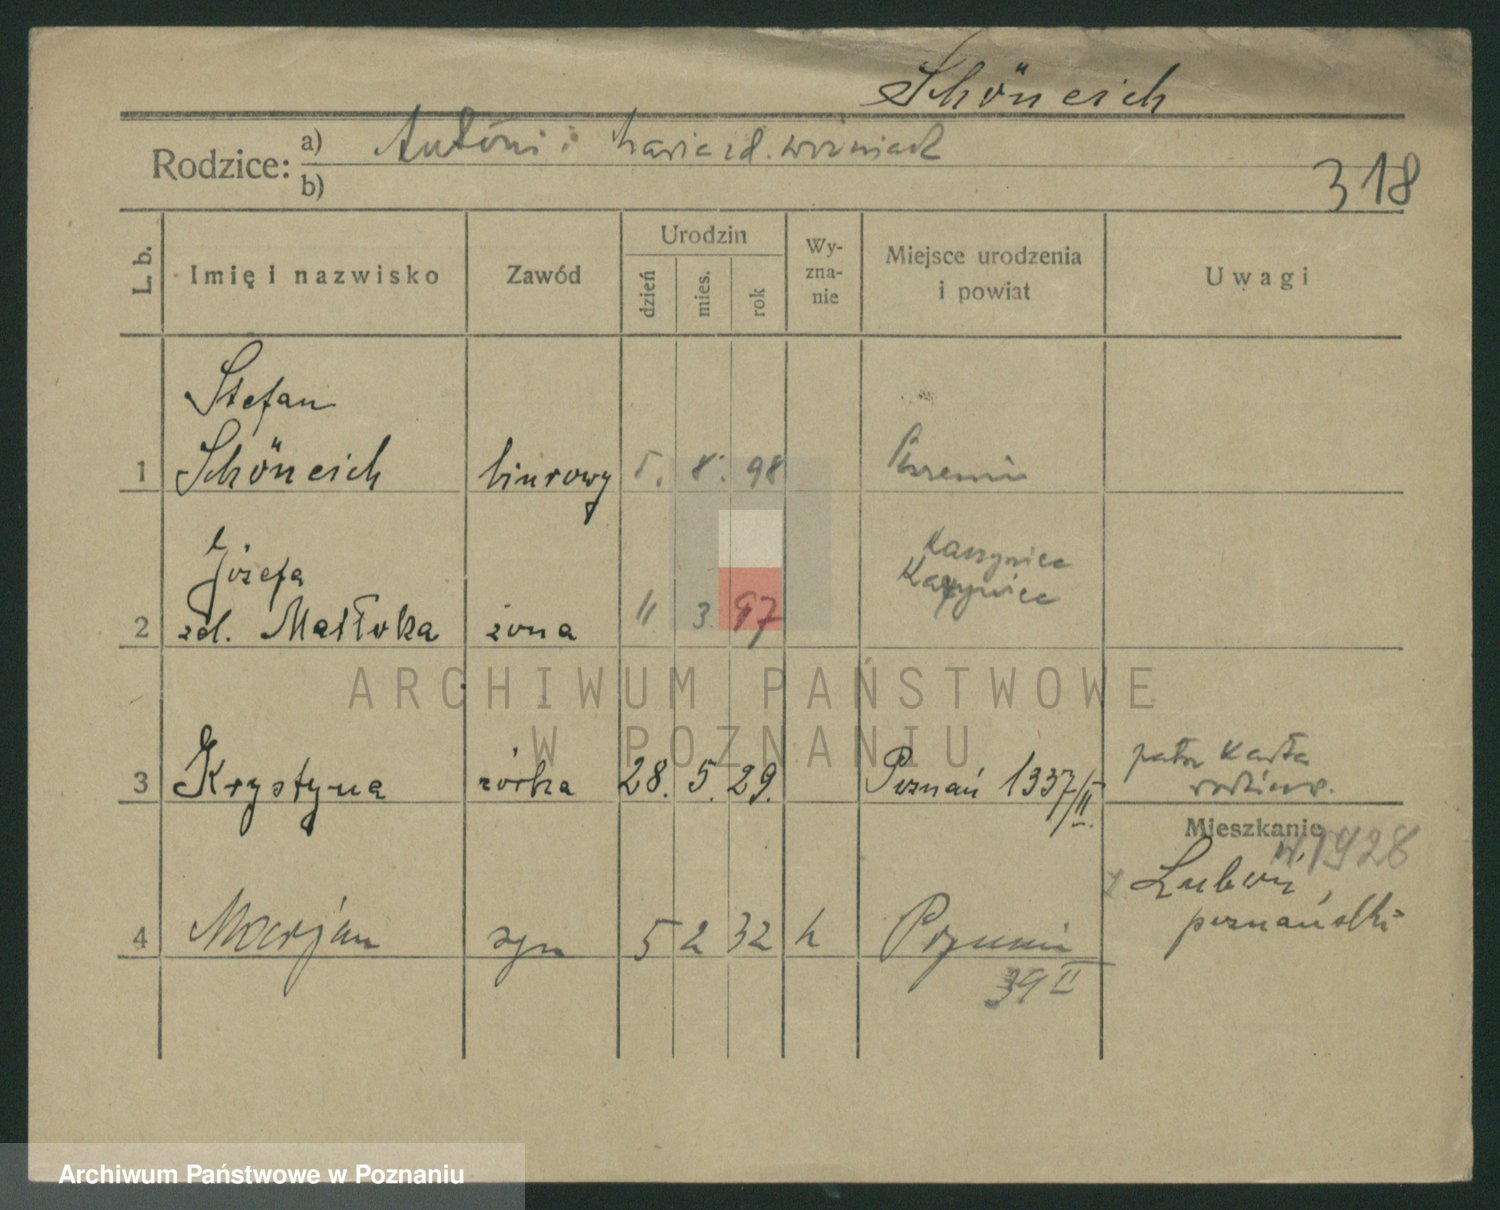 Schöneich
Rodzice: a) Antoni i Maria zd. Woźniak
b)
318
L. b.
Imię i nazwisko
Zawód
Urodzin
dzień
mies.
rok
Wy-
zna-
nie
Miejsce urodzenia
i powiat
Uwagi
Stefan
1 Schöneich biurowy 5. 8. 98
Józefa
2 zd. Matłoka żona 11 3. 97
ARCHIWUM PAŃSTWOWE
W POZNANIU
3 Krystyna córka 28. 5. 29. Poznań 1337/II.
patrz Karta
Mieszkanie
1928
Luboń,
poznański
4 Marjan syn 5 2 32
39 II
Archiwum Państwowe w Poznaniu